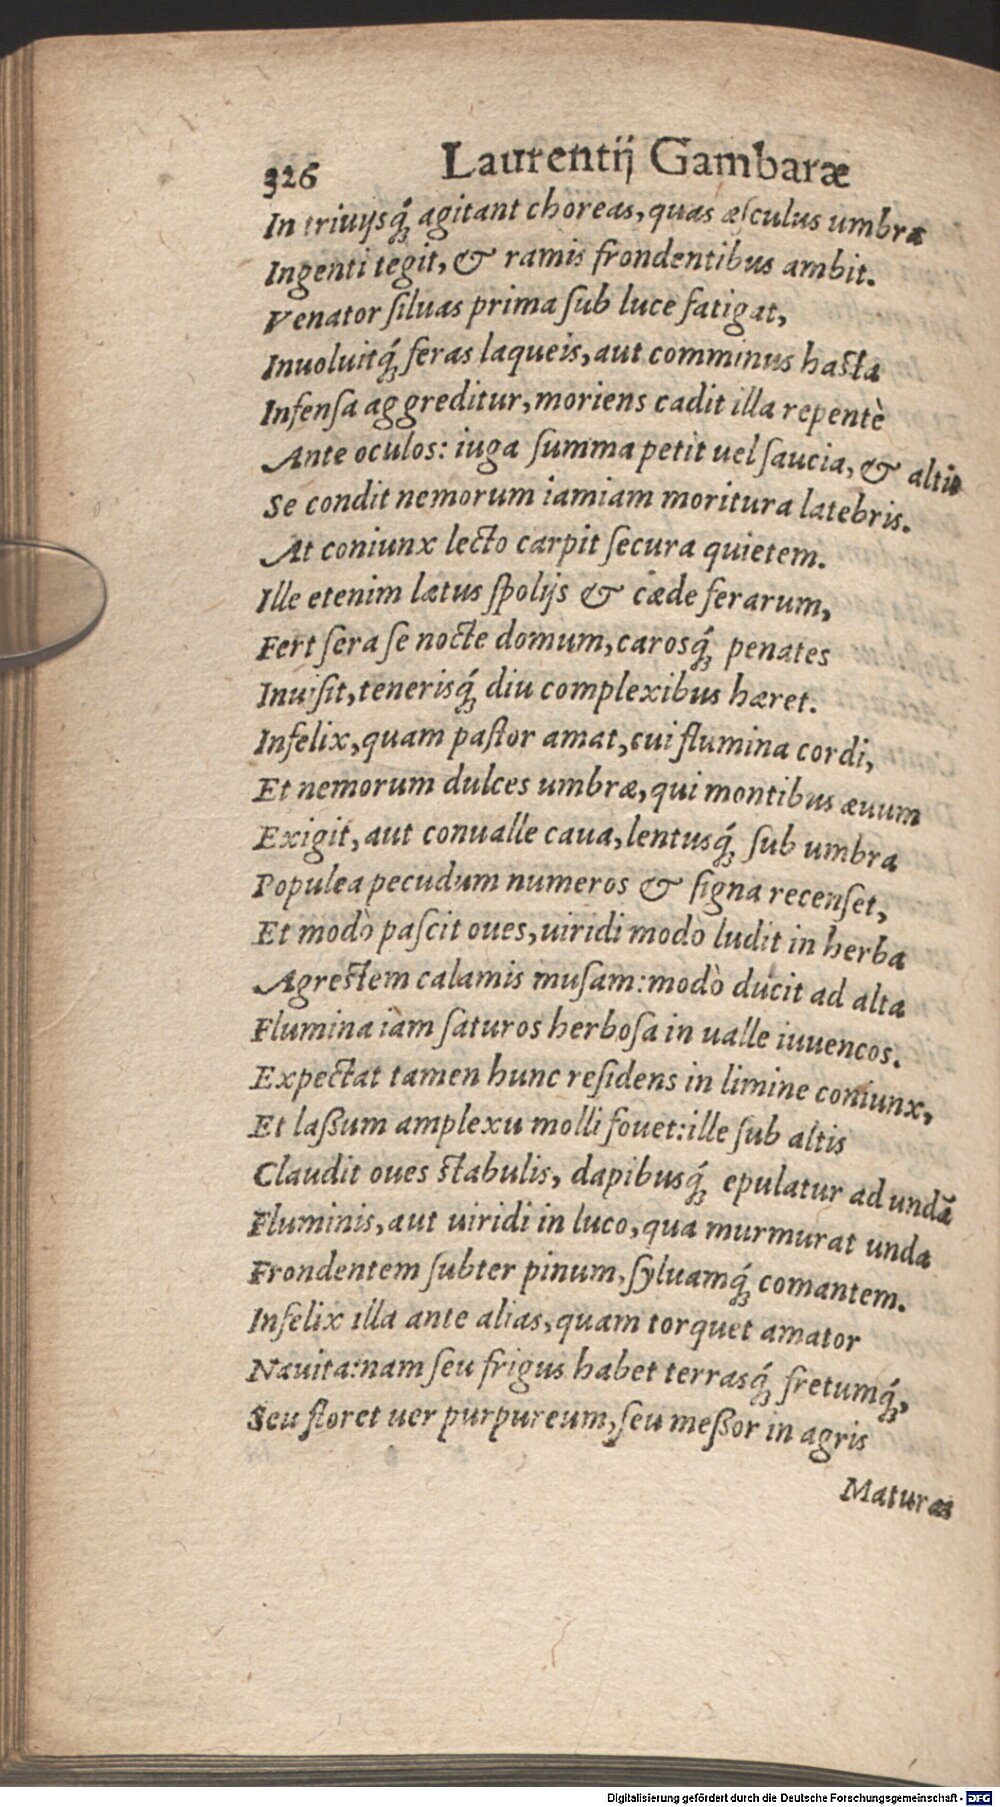 326 Laurentij Gambaræ
In triuijsq́ꝫ agitant choreas, quas æſculus umbra
Ingenti tegit, & ramis frondentibus ambit.
Venator ſiluas prima ſub luce fatigat,
Inuoluitq́ꝫ feras laqueis, aut comminus haſta
Infenſa aggreditur, moriens cadit illa repentè
Ante oculos: iuga ſumma petit uel ſaucia, & altis
Se condit nemorum iamiam moritura latebris.
At coniunx lecto carpit ſecura quietem.
Ille etenim lætus ſpolijs & cæde ferarum,
Fert ſera ſe nocte domum, carosq́ꝫ penates
Inuiſit, tenerisq́ꝫ diu complexibus hæret.
Infelix, quam paſtor amat, cui flumina cordi,
Et nemorum dulces umbræ, qui montibus æuum
Exigit, aut conualle caua, lentusq́ꝫ ſub umbra
Populea pecudum numeros & ſigna recenſet,
Et modò paſcit oues, uiridi modò ludit in herba
Agreſtem calamis muſam: modò ducit ad alta
Flumina iam ſaturos herboſa in ualle iuuencos.
Expectat tamen hunc reſidens in limine coniunx,
Et laßum amplexu molli fouet: ille ſub altis
Claudit oues ſtabulis, dapibusq́ꝫ epulatur ad undã
Fluminis, aut uiridi in luco, qua murmurat unda
Frondentem ſubter pinum, ſyluamq́ꝫ comantem.
Infelix illa ante alias, quam torquet amator
Nauita: nam ſeu frigus habet terrasq́ꝫ fretumq́ꝫ,
Seu floret uer purpureum, ſeu meßor in agris
Maturas
Digitalisierung gefördert durch die Deutsche Forschungsgemeinschaft - DFG